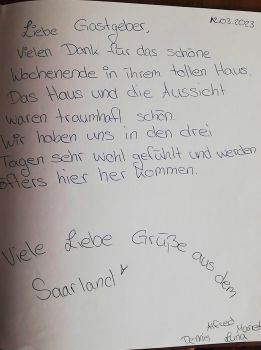 12.03.2023
Liebe Gastgeber,
Vielen Dank für das schöne
Wochenende in ihrem tollen Haus.
Das Haus und die Aussicht
waren traumhaft schön.
Wir haben uns in den drei
Tagen sehr wohl gefühlt und werden
öfters hier her kommen.
Viele Liebe Grüße aus dem
Saarland
Alfred
Dennis Luna